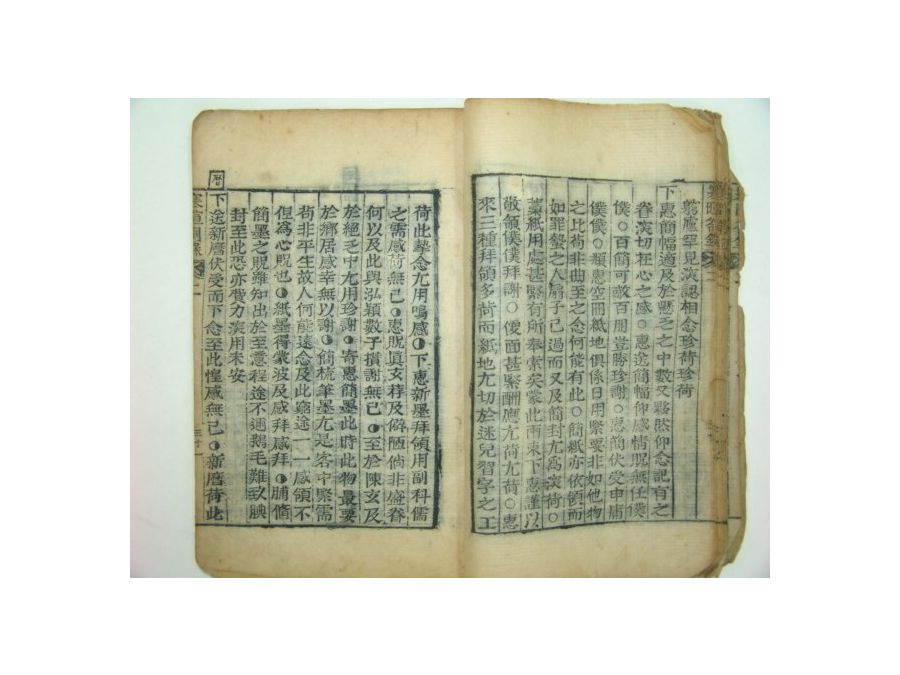 下惠簡幅適及於懸乏之中數又夥然仰念記有之
眷演切在心之感○惠送簡幅仰感情貺無任僕
僕○百簡可敵百朋豈勝珍謝○惠簡伏受中庸
僕僕○類惠空而紙地俱係日用緊要非如他物
之比苟非曲至之念何能有此○簡紙亦依領而
藁紙用處甚緊有所奉索矣蒙此兩束下惠謹以
敬領僕僕拜謝○便面甚緊酬應尤荷尤荷○惠
來三種拜領多荷而紙地尤切於迷兒習字之工
荷此摯念尤用鳴感○下惠新墨拜領用副科儒
之需感荷無已○惠貺眞玄荐及僻陋倘非盛眷
何以及此與泓穎數子攢謝無已○至於陳玄及
於絕乏中尤用珍謝○寄惠簡墨此時此物最要
於鄉居感幸無以謝○簡梳筆墨尤是客中緊需
苟非平生故人何能遠念及此窮途一一感領不
但爲心貺也○紙墨得蒙波及感拜感拜○脯脩
簡墨之貺雖知出於至意程途不邇鵝毛難致腆
封至此恐亦費力演用未安
曆
下送新曆伏受而下念至此惶感無已○新曆荷此